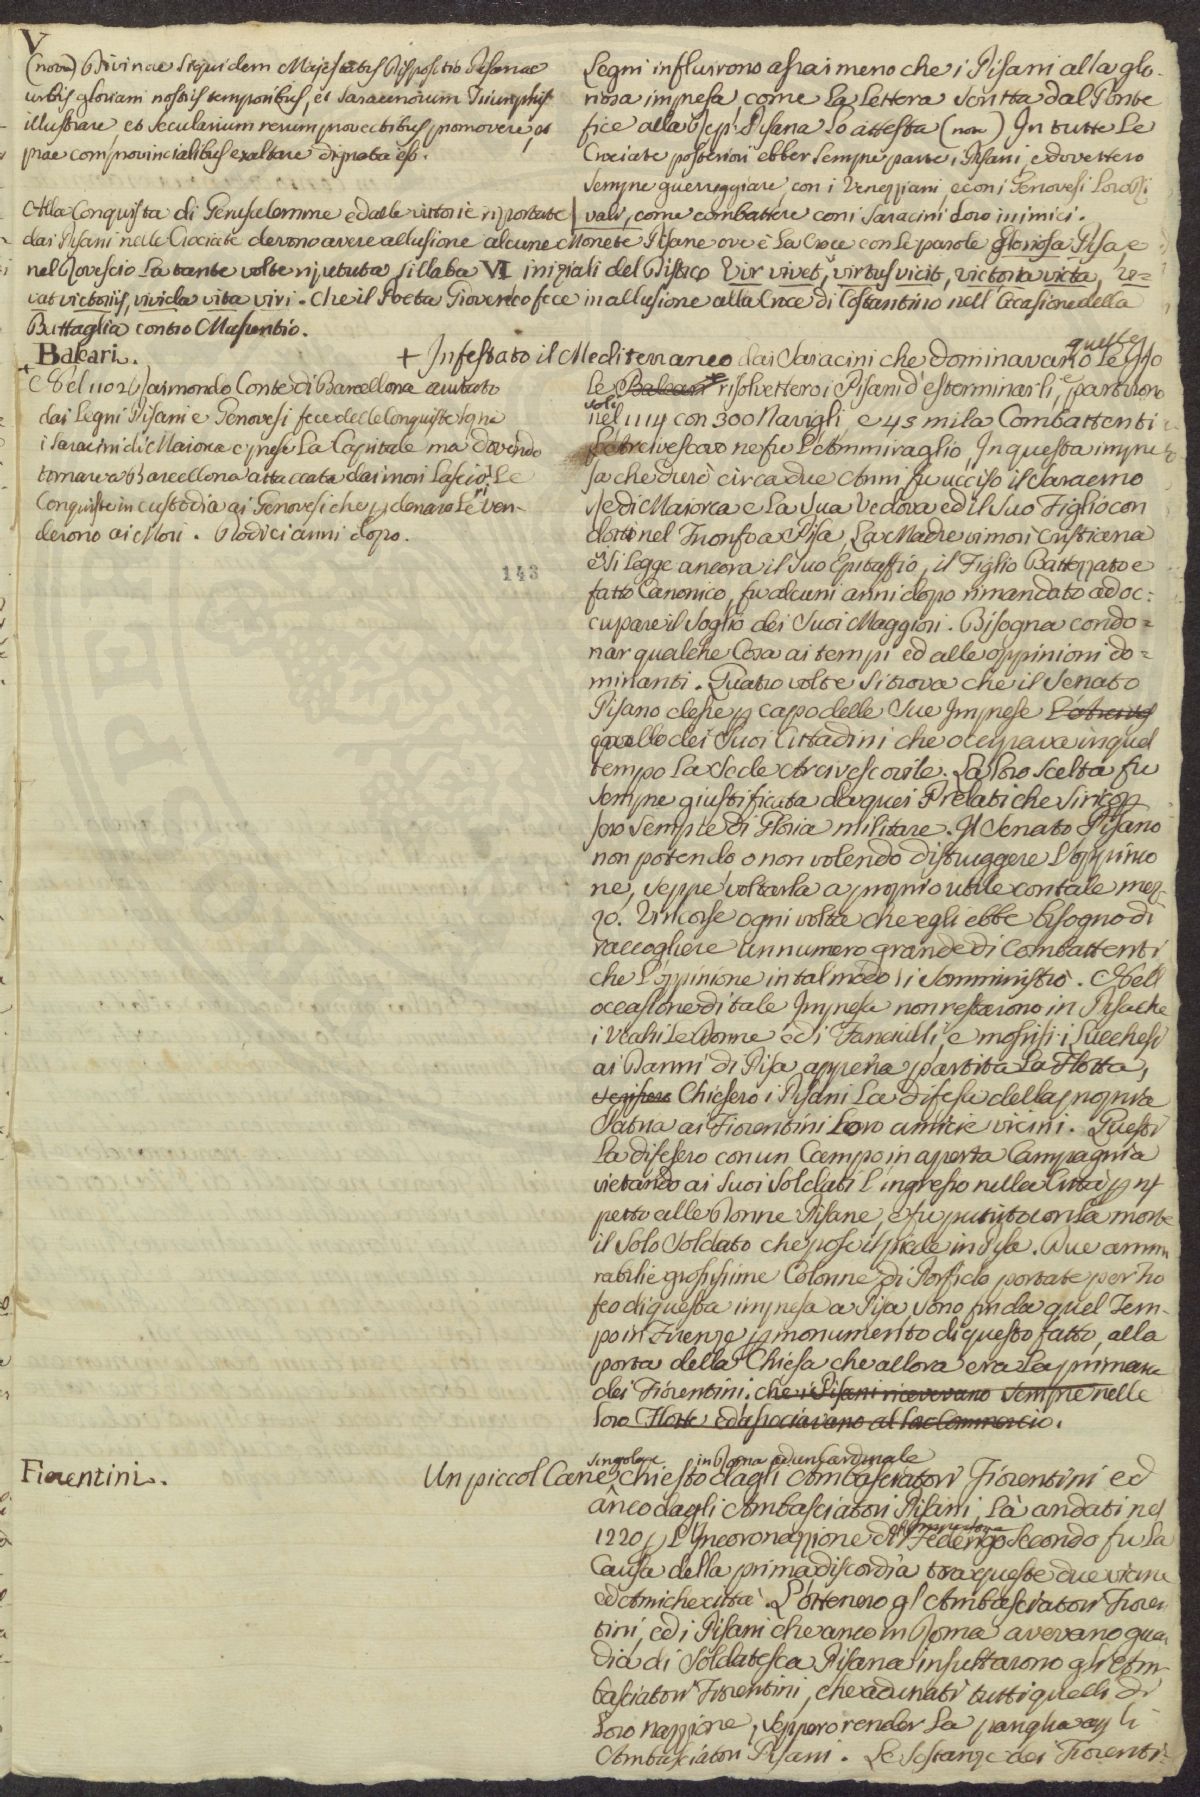 V
(nova) Divinae siquidem Majestatis dispositio Pisanae
urbis gloriam nostris temporibus, et Saracenorum Triumphis
illustrare et secularium rerum provectibus promovere, et
prae comprovincialibus exaltare dignata est.
Legni influirono assai meno che i Pisani alla glo-
riosa impresa, come la Lettera scritta dal Ponte
fice alla Rep: Pisana lo attesta (nova) In tutte le
Crociate posteriori ebber sempre parte i Pisani, e dovettero
sempre guerreggiare con i Veneziani e con i Genovesi loro Ri
vali, come combattere con i Saracini loro inimici.
Alla Conquista di Gerusalemme e dalle vittorie riportate
dai Pisani nelle Crociate devono avere allusione alcune Monete Pisane ove è la Croce con le parole gloriosa Pisa, e
nel Rovescio la tante volte ripetuta sillaba VI iniziali del Distico Vir vivet, virtus vicit, victoria victa, vi=
vat victoriis, vivida vita viri. Che il Poeta Giovenco fece in allusione alla Croce di Costantino nell'Occasione della
Battaglia contro Massentio.
Baleari.
+ Nel 1102 Raimondo Conte di Barcellona aiutato
dai Legni Pisani e Genovesi fece delle Conquiste sopra
i Saracini di Maiorca e prese la Capitale ma dovendo
tornare a Barcellona attaccata dai mori lasciò le
Conquiste in custodia ai Genovesi che p denaro le ri ven-
derono ai Mori. Dodici anni dopo.
143
+ Infestato il Mediterraneo dai Saracini che dominavano queste Iso
le Baleari risolvettero i Pisani d'esterminarli, e partirono
nel 1114 con 300 Navigli, e 45 mila Combattenti
l'Arcivescovo ne fu l'Ammiraglio, In questa impre
sa che durò circa due Anni fu ucciso il Saraceno
Re di Maiorca e la Sua Vedova ed il Suo Figlio con
dotti nel Trionfo a Pisa, La Madre vi morì Cristiana
e si legge ancora il suo Epitaffio, il Figlio Battezzato e
fatto Canonico, fu alcuni anni dopo rimandato ad oc:
cupare il Soglio dei Suoi Maggiori. Bisogna condo=
nar qualche Cosa ai tempi ed alle oppinioni do=
minanti. Quattro volte si trova che il Senato
Pisano elesse p capo delle Sue Imprese l'Arcives
quello dei Suoi Cittadini che occupava in quel
tempo la Sede Arcivescovile. La loro scelta fu
sempre giustificata da quei Prelati che si ricop
sero sempre di Gloria militare. Il Senato Pisano
non potendo, o non volendo distruggere l'oppinio
ne, seppe voltarla a proprio utile con tale mez-
zo. Vi ricorse ogni volta che egli ebbe bisogno di
raccogliere un numero grande di Combattenti
che l'oppinione in tal modo li somministrò. Nell
occasione di tale Impresa non restarono in Pisa che
i Vecchi le Donne ed i Fanciulli, e mossisi i Lucchesi
ai Danni di Pisa appena partita la Flotta,
Chiesero i Pisani la difesa della propria
Patria ai Fiorentini loro amici e vicini. Questi
la difesero con un Campo in aperta Campagna
vietando ai suoi soldati l'ingresso nella Città p ris
petto alle Donne Pisane, e fu punito con la morte
il solo Soldato che pose il piede in Pisa. Due ammi
rabili e grossissime Colonne di Porfido portate per tro
feo di questa impresa a Pisa sono fin da quel Tem-
po in Firenze p monumento di questo fatto, alla
porta della Chiesa che allora era la primaria
dei Fiorentini. che i Pisani ricevevano sempre nelle
loro Flotte ed associavano al lor Commercio.
Fiorentini.
Un piccol Cane singolare chiesto in Roma ad un Cardinale dagli Ambasciatori Fiorentini ed
anco dagli Ambasciatori Pisani, là andati nel
1220 p l'Incoronazione dell'Imperatore Federigo Secondo fu la
Causa della prima discordia tra queste due vicine
ed Amiche città. L'ottenero gl'Ambasciatori Fioren
tini, ed i Pisani che anco in Roma avevano guar
dia di Soldatesca Pisana insultarono gli Am
basciatori Fiorentini, che adunati tutti quelli di
loro nazzione, seppero render la pariglia agli
Ambasciatori Pisani. Le Sostanze dei Fiorenti-